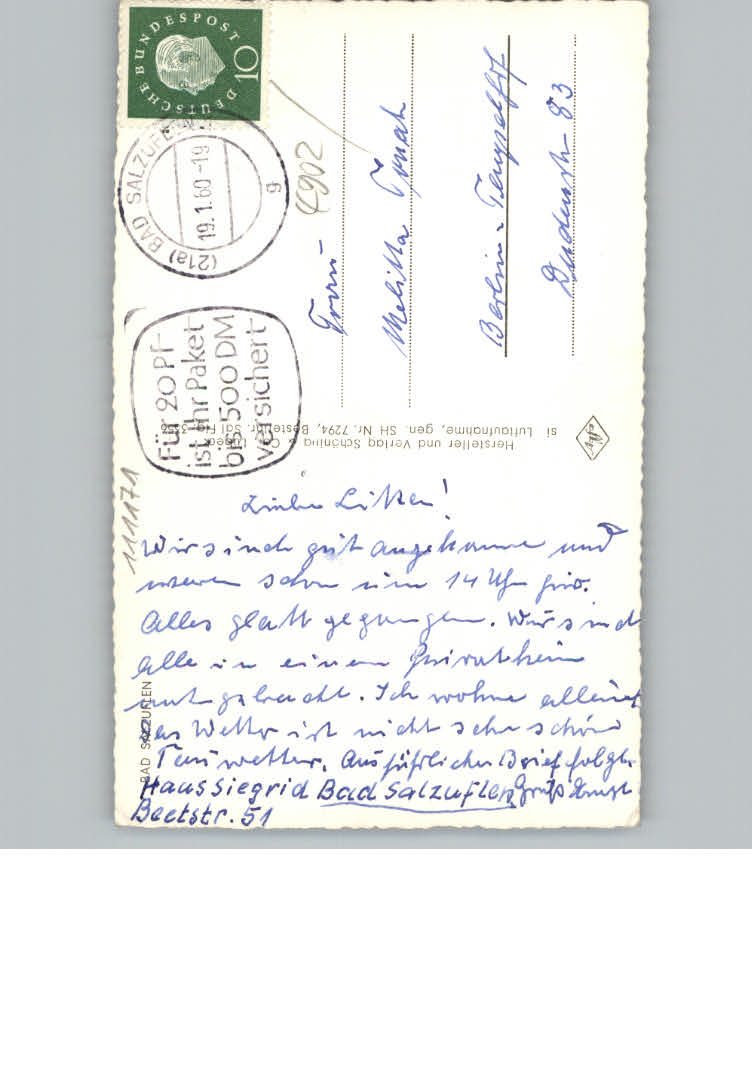 DEUTSCHE BUNDESPOST
10
(21a) BAD SALZUFLEN
19.1.60-19
g
Für 20 PF-
ist Ihr Paket
bis 500 DM
versichert
4902
Frau
Melitta
Berlin-Tempelhof
Dudenstr. 83
Hersteller und Verlag Schöning & Co., Lübeck
si Luftaufnahme, gen. SH Nr. 7294, Bestell-Nr. Sal Flg.
111171
BAD SALZUFLEN
Wir sind gut angekommen und
waren schon um 14 Uhr hier.
Alles glatt gegangen. Wir sind
alle in einem Privatheim
untergebracht. Ich wohne allein
Das Wetter ist nicht sehr schön
Tauwetter. Ausführlicher Brief folgt.
Haus Siegrid Bad Salzuflen Gruß
Beetstr. 51